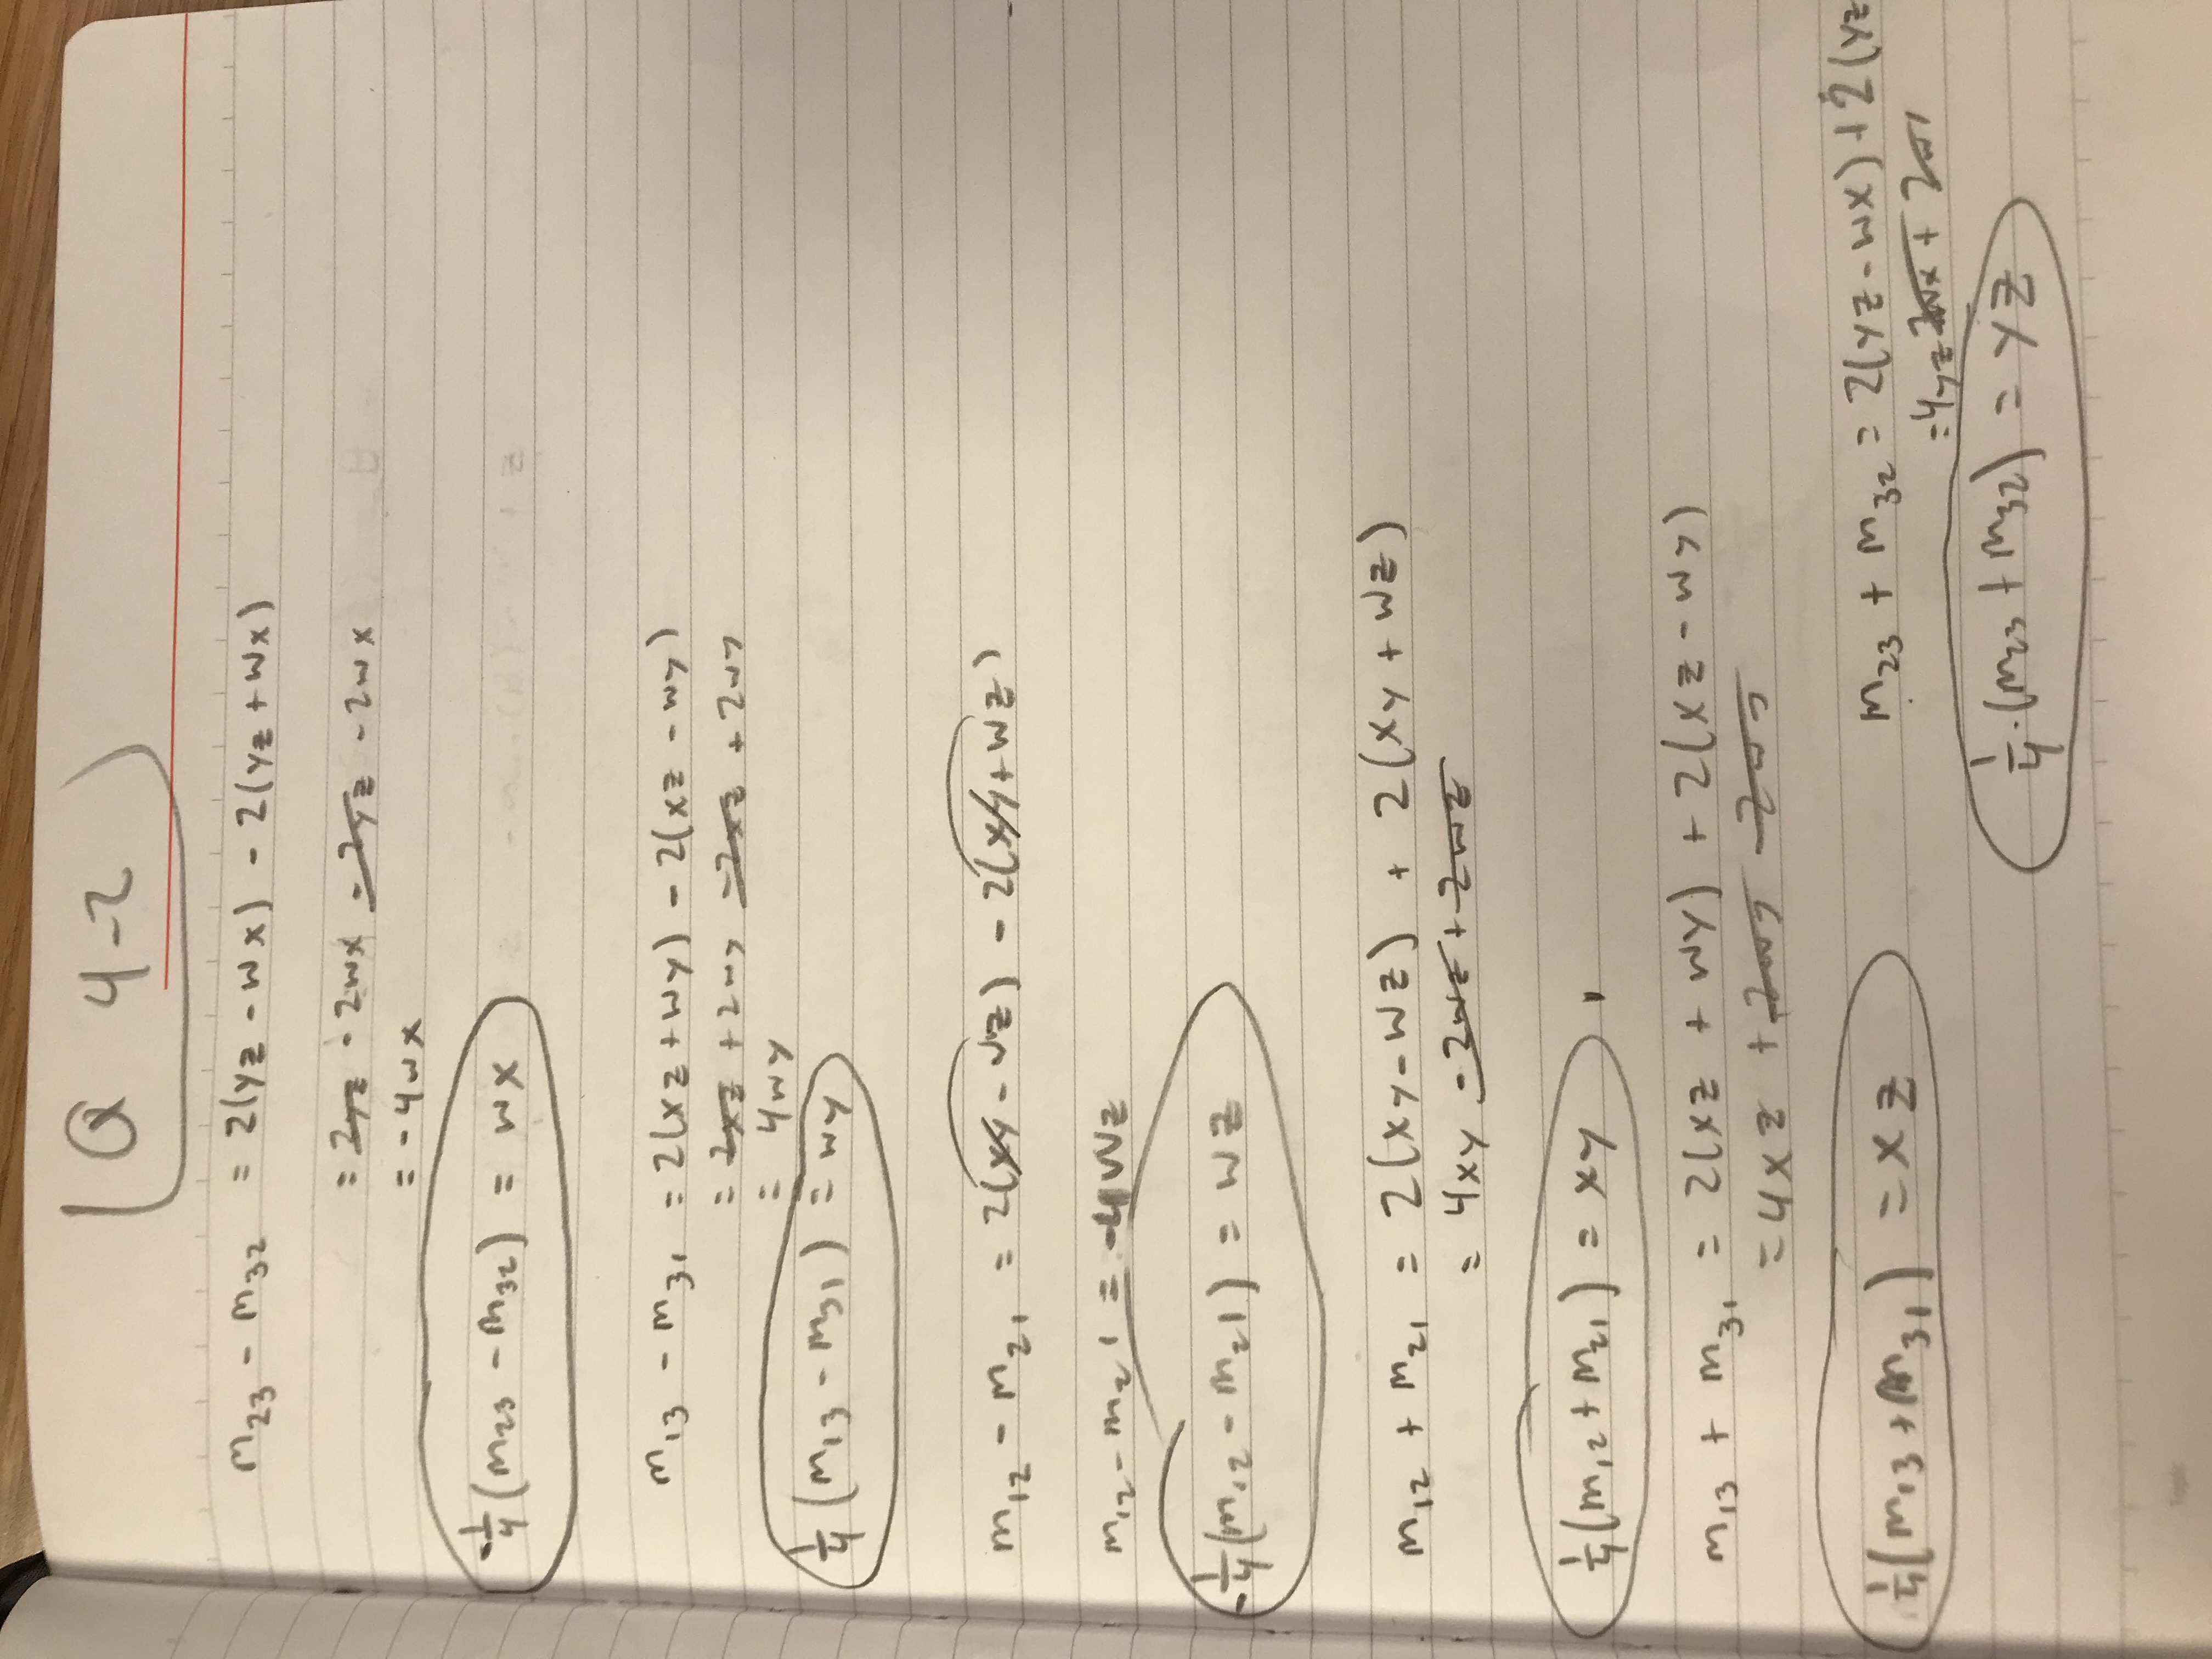 Q 4-2
m₂₃ - m₃₂ = 2(yz - wx) - 2(yz + wx)
= 2yz - 2wx - 2yz - 2wx
= -4wx
-1/4 (m₂₃ - m₃₂) = wx
m₁₃ - m₃₁ = 2(xz + wy) - 2(xz - wy)
= 2xz + 2wy - 2xz + 2wy
= 4wy
1/4 (m₁₃ - m₃₁) = wy
m₁₂ - m₂₁ = 2(xy - wz) - 2(xy + wz)
m₁₂ - m₂₁ = -4wz
-1/4 (m₁₂ - m₂₁) = wz
m₁₂ + m₂₁ = 2(xy - wz) + 2(xy + wz)
= 4xy - 2wz + 2wz
1/4 (m₁₂ + m₂₁) = xy
m₁₃ + m₃₁ = 2(xz + wy) + 2(xz - wy)
= 4xz + 2wy - 2wy
1/4 (m₁₃ + m₃₁) = xz
m₂₃ + m₃₂ = 2(yz - wx) + 2(yz
= 4yz 2wx + 2w
1/4 · (m₂₃ + m₃₂) = yz
Topic